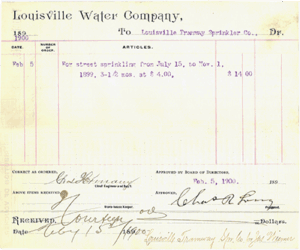 Louisville Water Company,
189
1900
To Louisville Tramway Sprinkler Co., Dr.
DATE. NUMBER ARTICLES.
Feb 5 For street sprinkling from July 15, to Nov. 1,
1899, 3-1/2 mos. at $ 4.00, $ 14 00
CORRECT AS ORDERED, APPROVED BY BOARD OF DIRECTORS
Chas Hermany Feb. 5, 1900.
Chief Engineer and Sup't
ABOVE ITEMS RECEIVED, Approved,
Chas R Long
RECEIVED Dollars.
Date Feby 15th 1900 Louisville Tramway